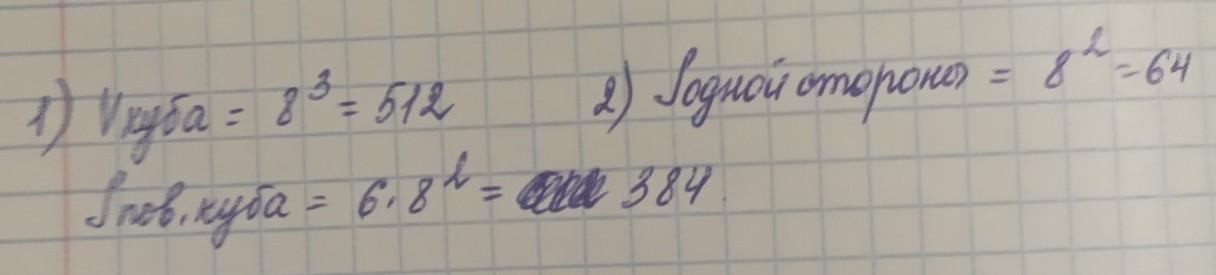 1) Vкуба = 8³ = 512
2) Sодной стороны = 8² = 64
Sпов. куба = 6 · 8² = 384